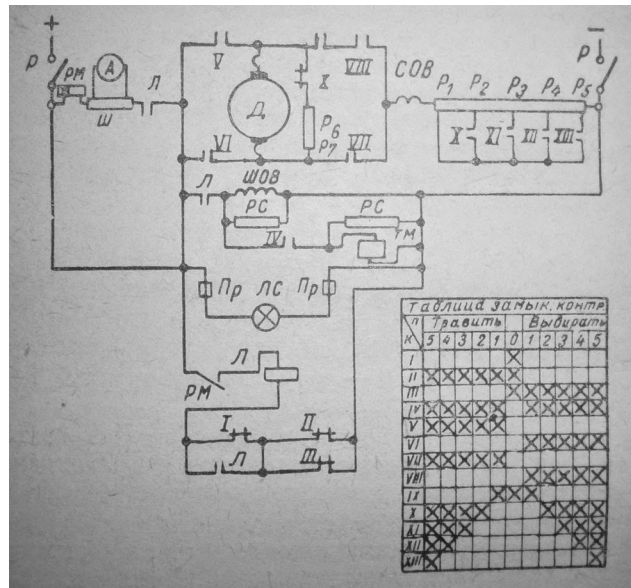 +
−
Р
РМ
А
Ш
Л
V
VIII
X
Д
VI
Р6
Р7
VII
СОВ
Р1 Р2 Р3 Р4 Р5
Р
X XI XII XIII
Л
ШОВ
РС
IV
РС
ТМ
Пр
ЛС
Пр
РМ
Л
I
II
Л
III
Таблица замык. контр.
П
К
Травить 0 Выбирать
5 4 3 2 1 0 1 2 3 4 5
I
II
III
IV
V
VI
VII
VIII
IX
X
XI
XII
XIII